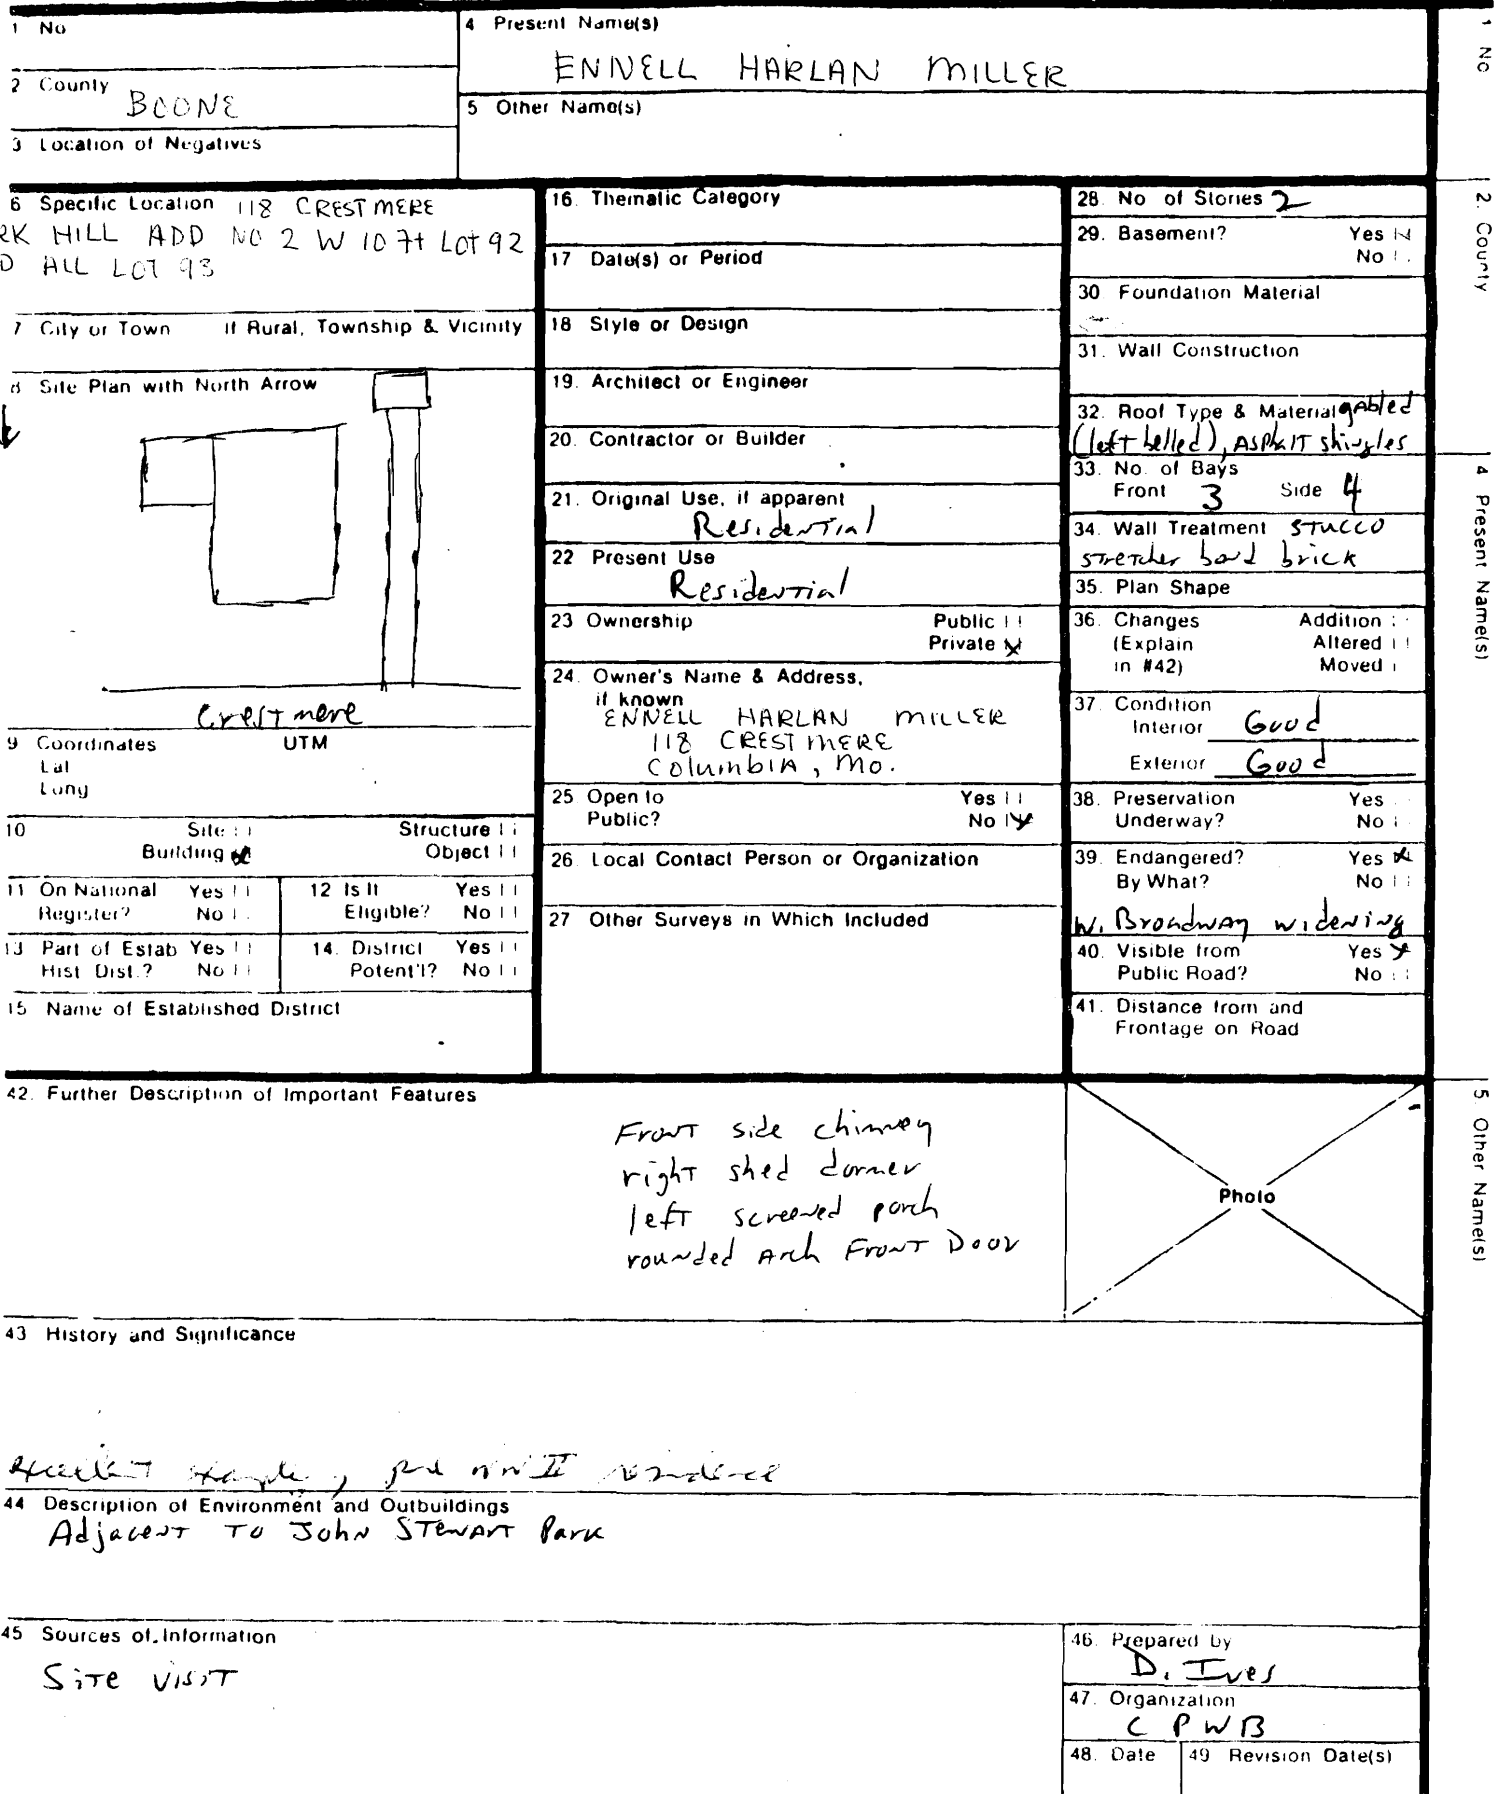 1 No
4 Present Name(s)
ENNELL HARLAN MILLER
2 County
BOONE
5 Other Name(s)
3 Location of Negatives
6 Specific Location 118 CRESTMERE
RK HILL ADD NO 2 W 10 7t Lot 92
D ALL LOT 93
7 City or Town If Rural, Township & Vicinity
8 Site Plan with North Arrow
Crestmere
9 Coordinates UTM
Lat
Long
10 Site
Structure
Building x
Object
11 On National Register? Yes No
12 Is It Eligible? Yes No
13 Part of Estab Hist Dist.? Yes No
14. District Potent'l? Yes No
15 Name of Established District
16. Thematic Category
17 Date(s) or Period
18 Style or Design
19. Architect or Engineer
20. Contractor or Builder
21. Original Use, if apparent
Residential
22 Present Use
Residential
23 Ownership Public
Private x
24. Owner's Name & Address,
if known
ENNELL HARLAN MILLER
118 CRESTMERE
Columbia, Mo.
25 Open to Yes
Public? No x
26. Local Contact Person or Organization
27 Other Surveys in Which Included
28. No of Stories 2
29. Basement? Yes
No
30 Foundation Material
31. Wall Construction
32. Roof Type & Material gabled
(left belled), ASPhalT shingles
33. No. of Bays
Front 3 Side 4
34. Wall Treatment STUCCO
stretcher bond brick
35. Plan Shape
36. Changes Addition
(Explain Altered
in #42) Moved
37. Condition
Interior Good
Exterior Good
38. Preservation Yes
Underway? No
39. Endangered? Yes x
By What? No
W. Broadway widening
40. Visible from Yes x
Public Road? No
41. Distance from and
Frontage on Road
42. Further Description of Important Features
Front side chimney
right shed dormer
left screened porch
rounded Arch Front Door
Photo
43 History and Significance
excellent example, pre WW II residence
44 Description of Environment and Outbuildings
Adjacent To John Stewart Park
45 Sources of Information
Site visit
46. Prepared by
D. Ives
47. Organization
CPWB
48. Date 49 Revision Date(s)
1 No
2. County
4 Present Name(s)
5. Other Name(s)